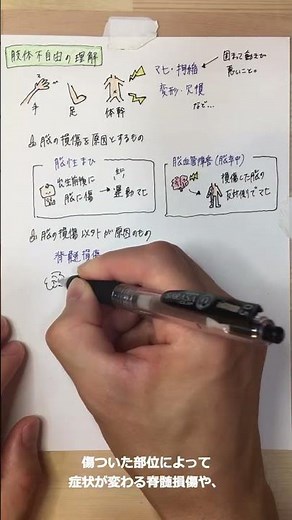 肢体不自由の理解
手
足
体幹
マヒ・拘縮
変形・欠損
など…
固まって動きが
悪いこと。
脳の損傷を原因とするもの
脳性まひ
出生前後に
脳に傷
運動マヒ
脳血管障害(脳卒中)
損傷した脳の
反対側がマヒ
脳の損傷以外が原因のもの
脊髄損傷
傷ついた部位によって
症状が変わる脊髄損傷や、